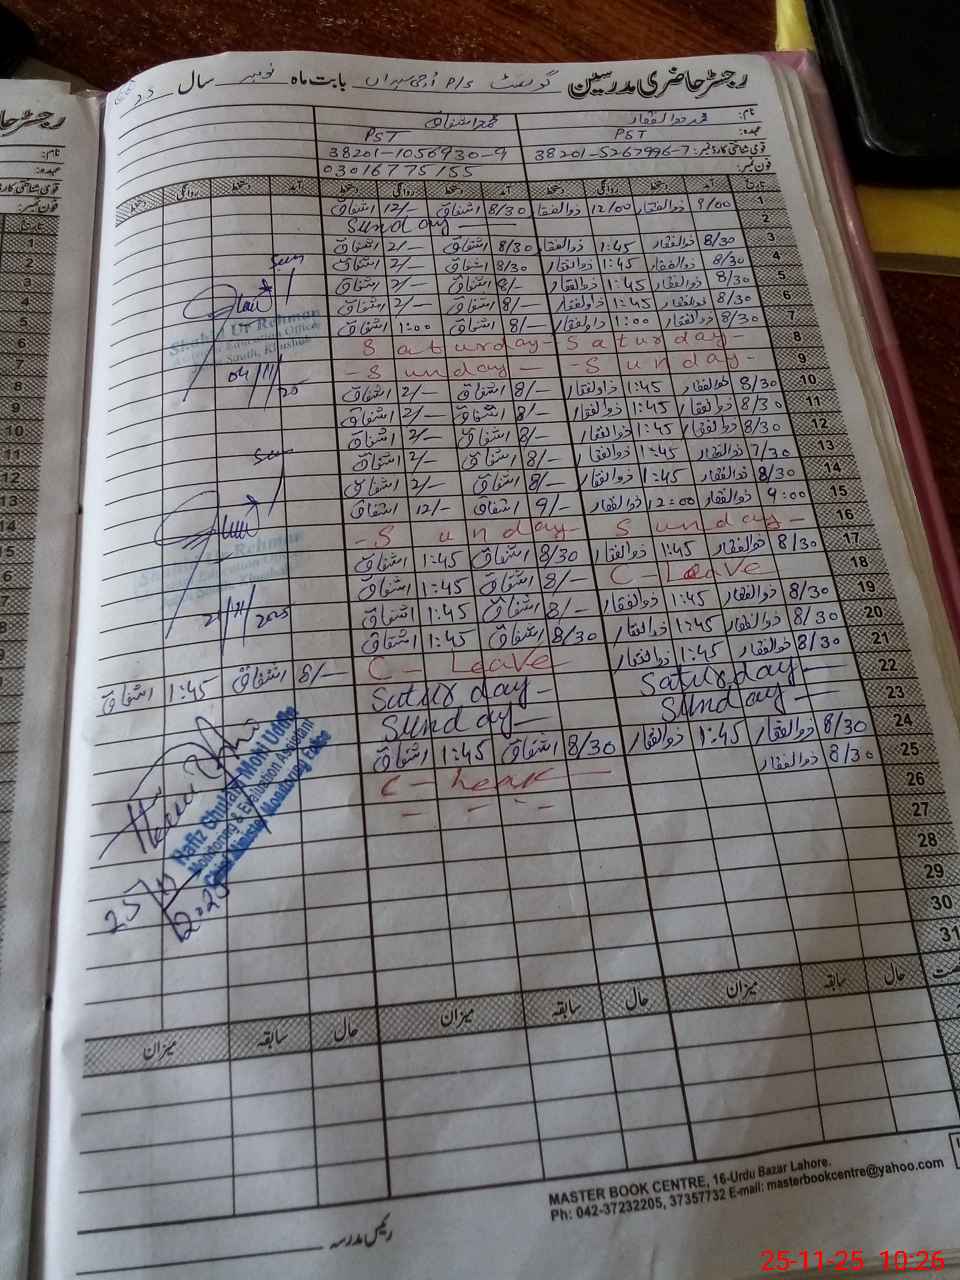 رجسٹر حاضری مدرسین گورنمنٹ P/S بابت ماہ نومبر سال
نام: محمد ذوالفقار محمد اشفاق
عہدہ: PST PST
قومی شناختی کارڈ نمبر: 38201-5267996-7 38201-1056930-9
فون نمبر: 03016775155
تاریخ آمد دستخط روانگی دستخط آمد دستخط روانگی دستخط آمد دستخط روانگی دستخط
1 9/00 ذوالفقار 12/00 ذوالفقار 8/30 اشفاق 12/— اشفاق
2 Sunday
3 8/30 ذوالفقار 1:45 ذوالفقار 8/30 اشفاق 2/— اشفاق
4 8/30 ذوالفقار 1:45 ذوالفقار 8/30 اشفاق 2/— اشفاق
5 8/30 ذوالفقار 1:45 ذوالفقار 8/— اشفاق 2/— اشفاق
6 8/30 ذوالفقار 1:45 ذوالفقار 8/— اشفاق 2/— اشفاق
7 8/30 ذوالفقار 1:00 ذوالفقار 8/— اشفاق 1:00 اشفاق
8 Saturday- Saturday-
9 -Sunday- -Sunday-
10 8/30 ذوالفقار 1:45 ذوالفقار 8/— اشفاق 2/— اشفاق
11 8/30 ذوالفقار 1:45 ذوالفقار 8/— اشفاق 2/— اشفاق
12 8/30 ذوالفقار 1:45 ذوالفقار 8/— اشفاق 2/— اشفاق
13 7/30 ذوالفقار 1:45 ذوالفقار 8/— اشفاق 2/— اشفاق
14 8/30 ذوالفقار 1:45 ذوالفقار 8/— اشفاق 2/— اشفاق
15 9:00 ذوالفقار 12:00 ذوالفقار 9/— اشفاق 12/— اشفاق
16 Sunday- -Sunday-
17 8/30 ذوالفقار 1:45 ذوالفقار 8/30 اشفاق 1:45 اشفاق
18 C-Leave 8/— اشفاق 1:45 اشفاق
19 8/30 ذوالفقار 1:45 ذوالفقار 8/— اشفاق 1:45 اشفاق
20 8/30 ذوالفقار 1:45 ذوالفقار 8/30 اشفاق 1:45 اشفاق
21 8/30 ذوالفقار 1:45 ذوالفقار C-Leave 8/— اشفاق 1:45 اشفاق
22 Saturday— Saturday-
23 Sunday— Sunday—
24 8/30 ذوالفقار 1:45 ذوالفقار 8/30 اشفاق 1:45 اشفاق
25 8/30 ذوالفقار
26
27
28
29
30
31
Shafiq Ur Rehman
Education Officer
South, Khushab
04/11/25
21/11/2025
Hafiz Ghulam Mohi Uddin
Monitoring & Evaluation Assistant
Chief Minister Monitoring Force
25/11/2025
حال سابقہ میزان حال سابقہ میزان حال سابقہ میزان
رئیس مدرسہ
MASTER BOOK CENTRE, 16-Urdu Bazar Lahore.
Ph: 042-37232205, 37357732 E-mail: masterbookcentre@yahoo.com
25-11-25 10:26